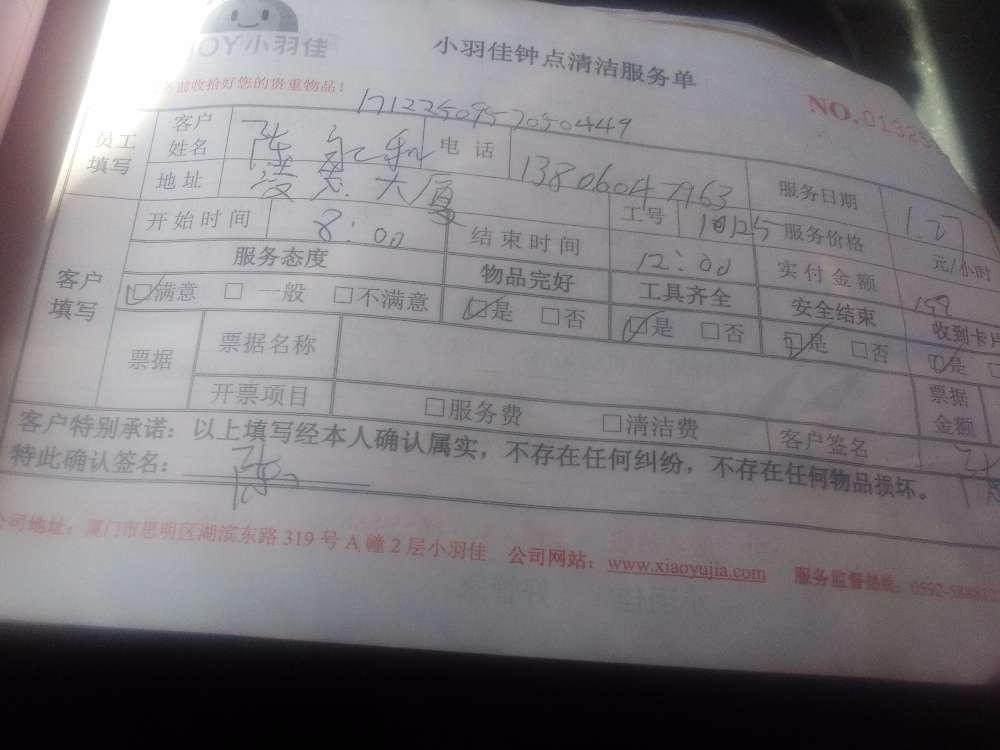 JOY小羽佳
小羽佳钟点清洁服务单
前收拾好您的贵重物品！
NO.0132
1712250957050449
员工填写 客户姓名 陈永利 电话 13806047963 服务日期 1.27
地址 大厦 工号 服务价格 元/小时
客户填写 开始时间 8:00 结束时间 12:00 实付金额
服务态度 物品完好 工具齐全 安全结束 收到卡片
☑满意 □一般 □不满意 ☑是 □否 ☑是 □否 ☑是 □否 ☑是
票据 票据名称 票据金额
开票项目 □服务费 □清洁费 客户签名
客户特别承诺：以上填写经本人确认属实，不存在任何纠纷，不存在任何物品损坏。
特此确认签名：陈
公司地址：厦门市思明区湖滨东路 319 号 A 幢 2 层小羽佳 公司网站：www.xiaoyujia.com 服务监督热线：0592-5888